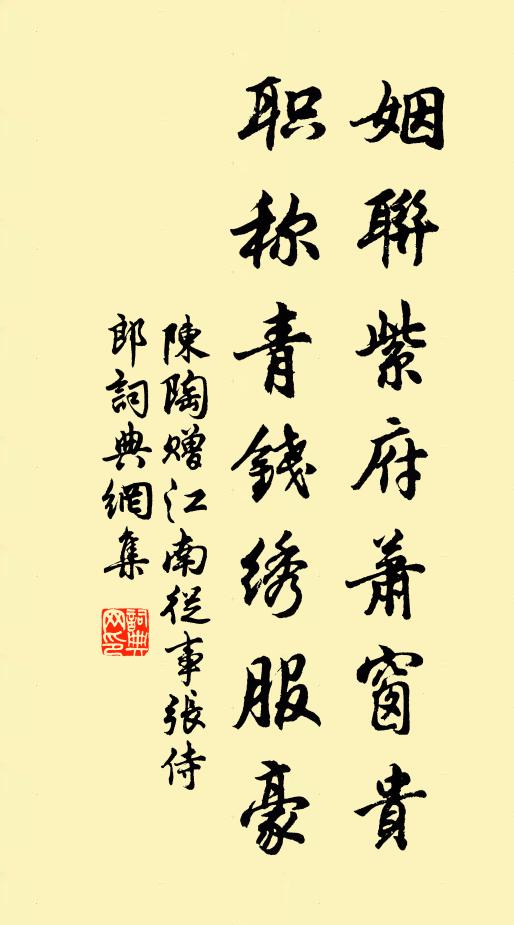 姻聯紫府萧窗貴
职称青錢绣服豪
陳陶赠江南從事張侍
郎詞典網集
詞典
网印